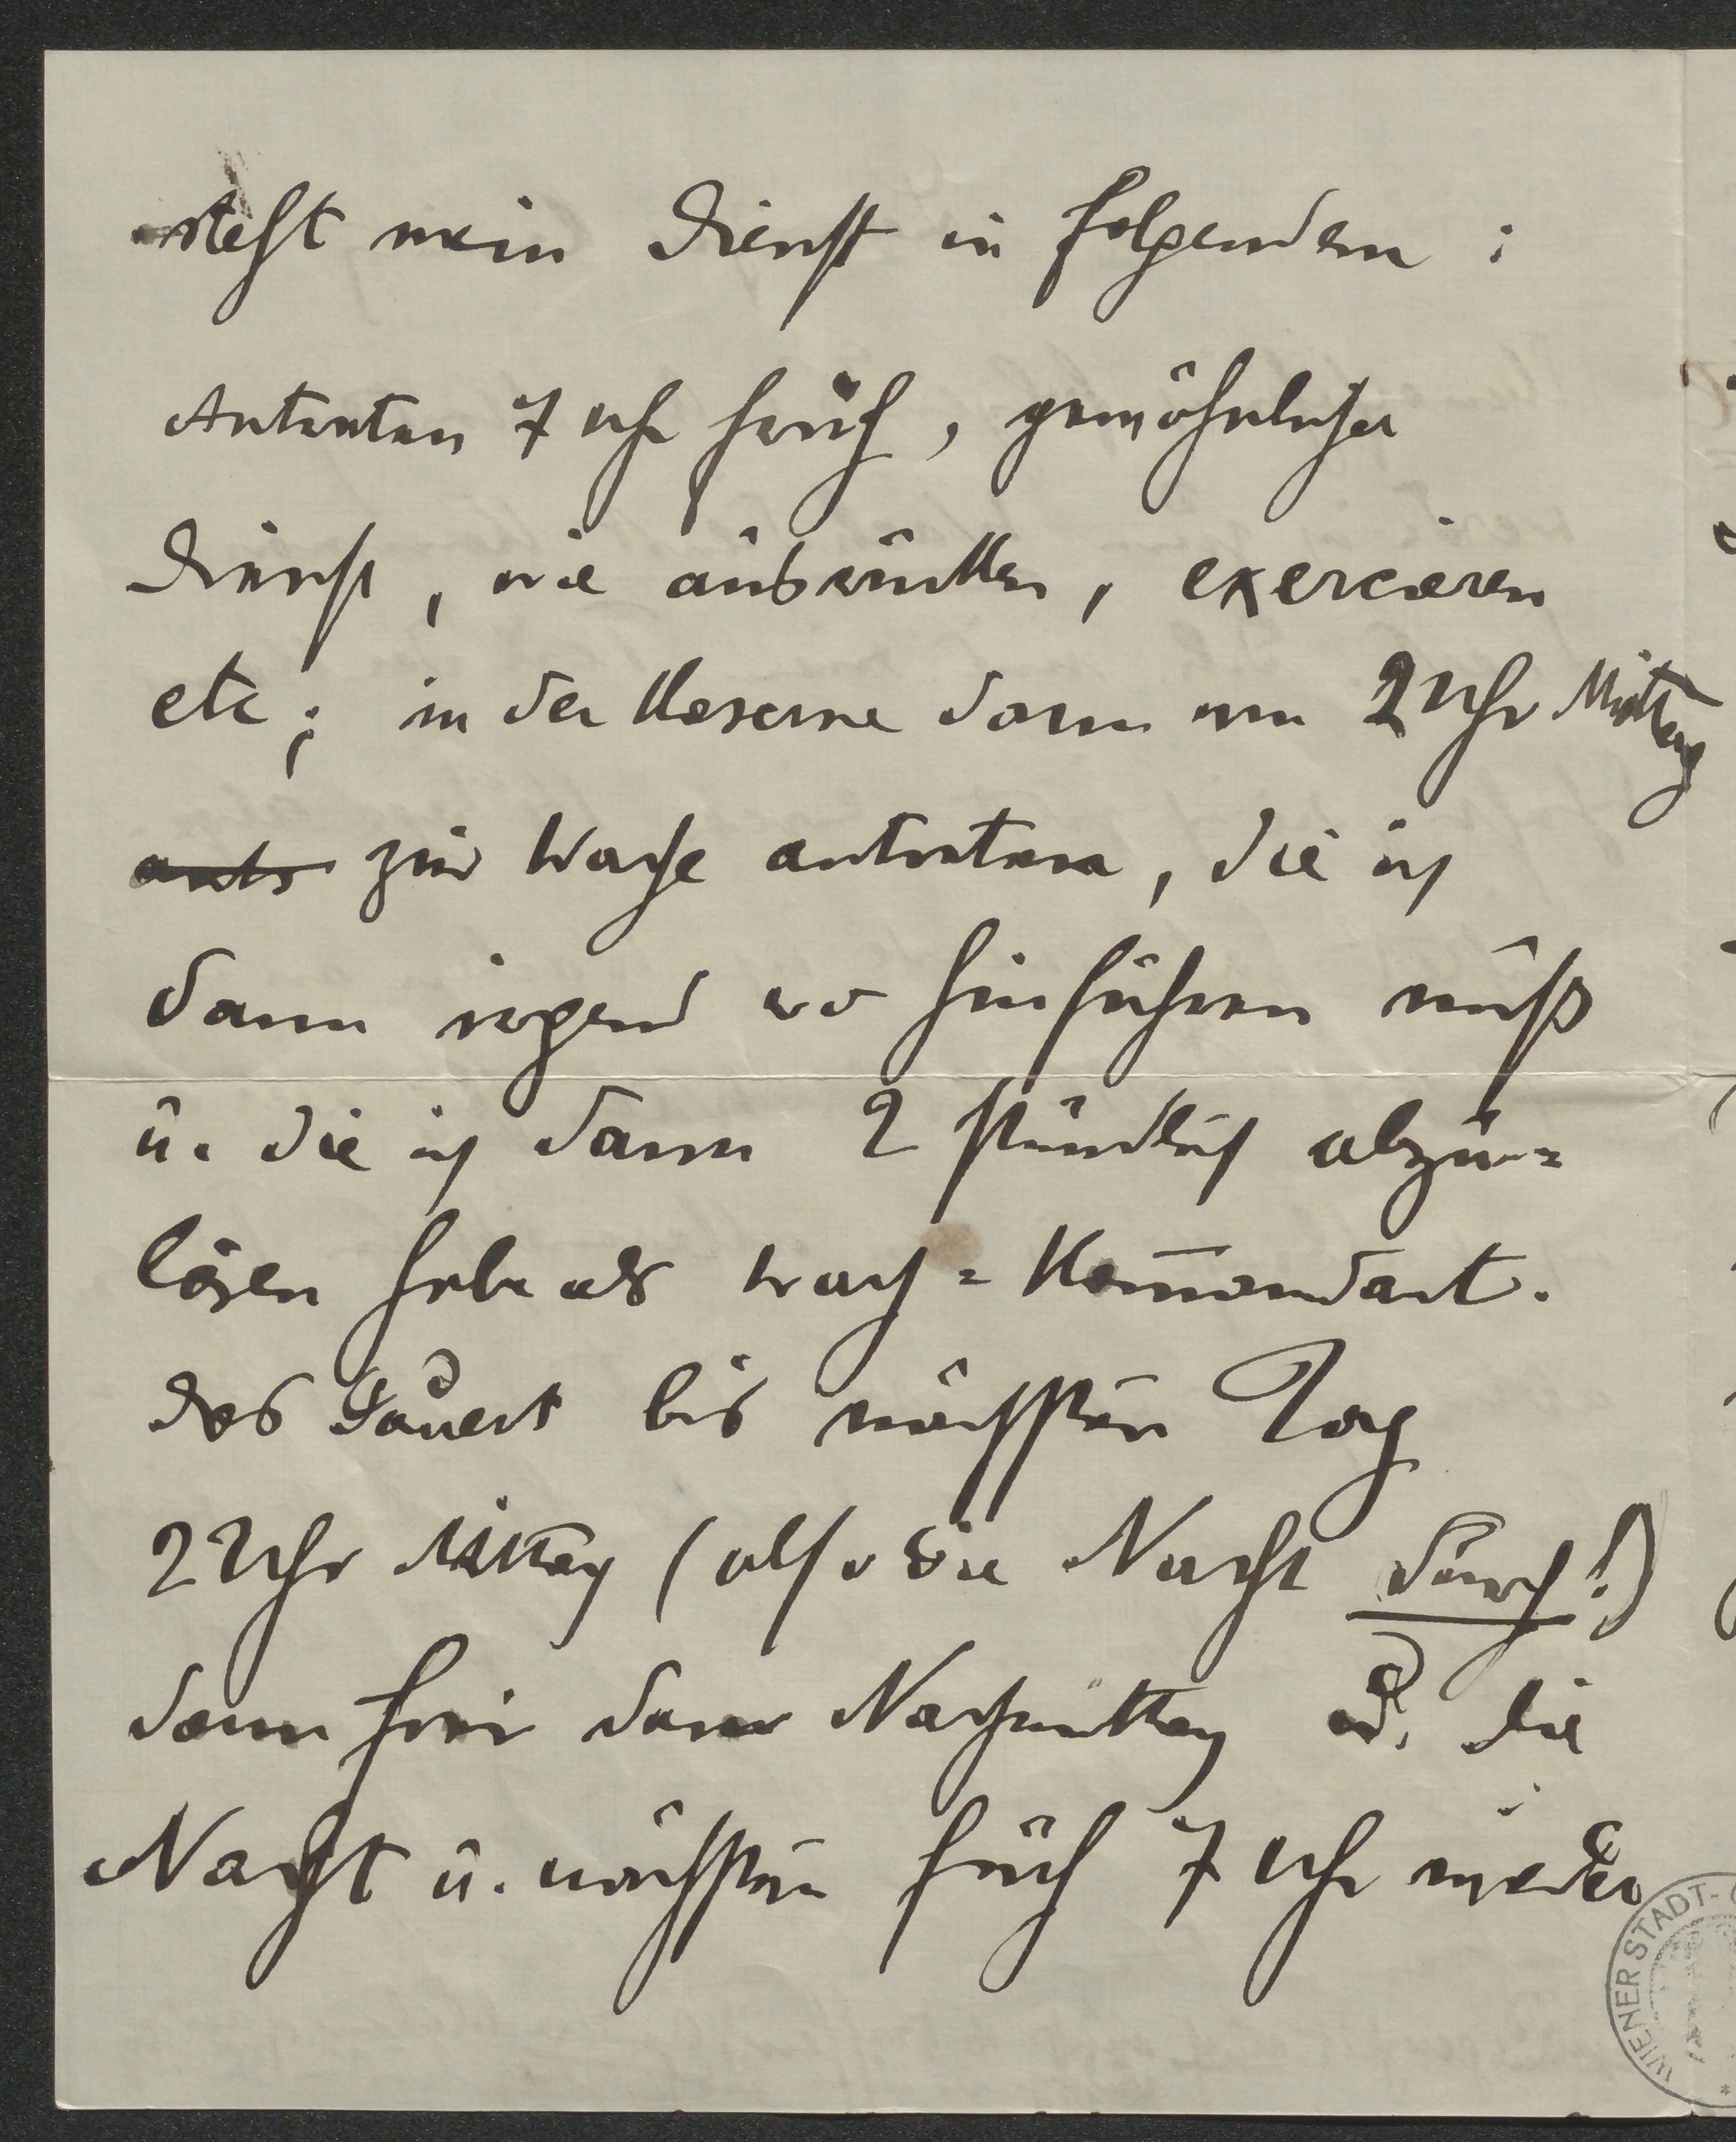 steht mein Dienst in folgendem :
Antreten 7 Uhr früh, gewöhnlicher
Dienst, wie ausrücken, exercieren
etc; in der Kaserne dann um 2 Uhr Mittag
antr zur Wache antreten, die ich
dann irgend wo hinführen muß
u. die ich dann 2 stündlich abzu=
lösen habe als Wach=Kom̄andant.
das dauert bis nächsten Tag
2 Uhr Mittag (also die Nacht durch!)
dann frei dann Nachmittag u. die
Nacht u. nächsten früh 7 Uhr wieder
WIENER STADT-